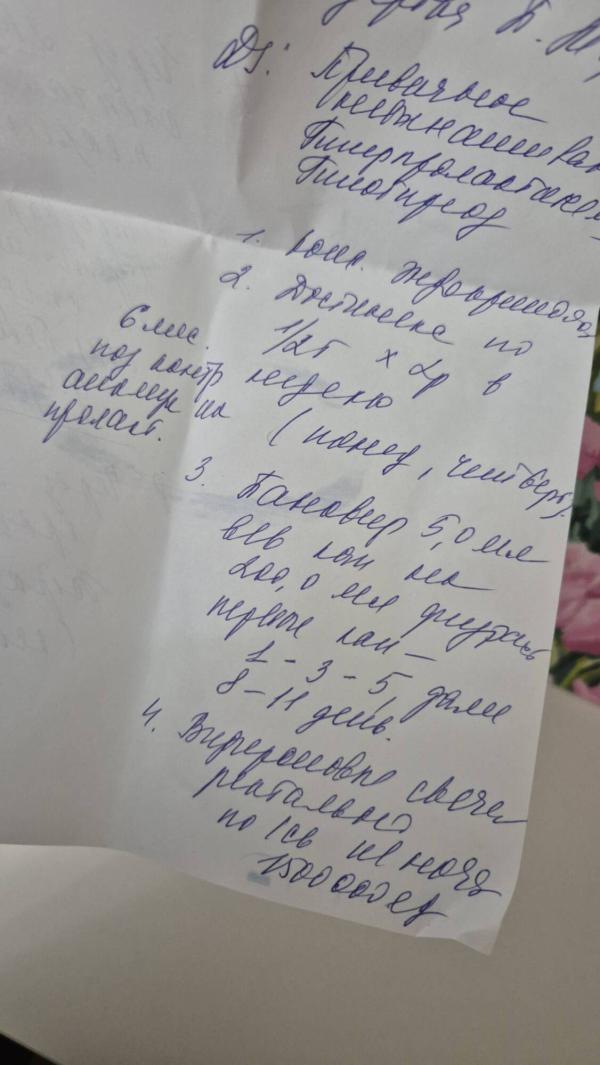 П.
Ds: Привычное
невынашиван
Гиперпролактинем
Гипотиреоз
1. Конс. эндокринолог
2. Достинекс по
1/2т х 2р в
неделю
(понед, четверг).
6 мес.
под контр
анализ на
пролакт.
3. Пановир 5,0 мл
в/в кап на
200,0 мл физраств
первые кап –
1 – 3 – 5, далее
8 – 11 день.
4. Виферон свечи
ректально
по 1 св на ночь
1500000 ед